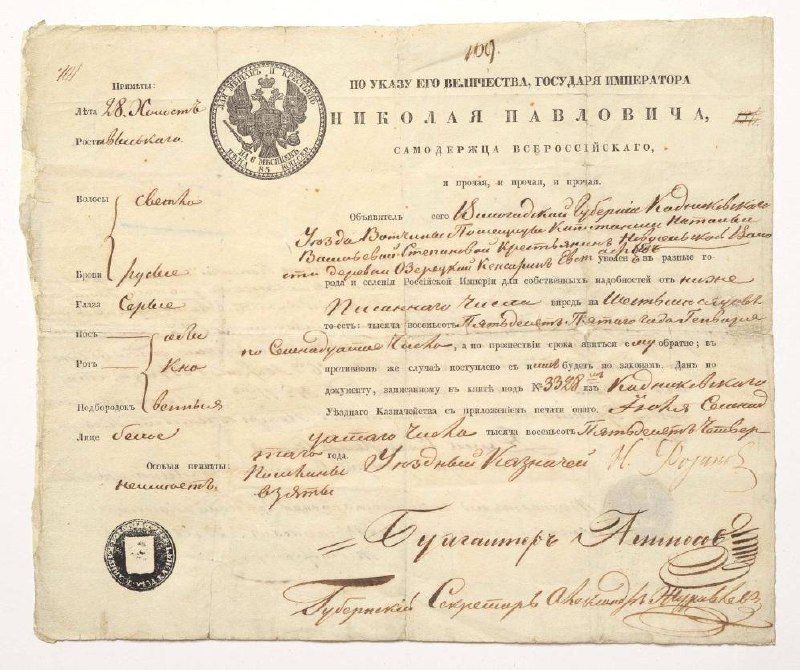 109.
Приметы:
Лѣта 28. Холостъ
Ростъ высокаго
Волосы свѣтло
Брови русые
Глаза Серые
Носъ
Ротъ
Подбородокъ
обыкновенныя
Лице белое
Особыя примѣты:
неимѣетъ
ДЛЯ МѢЩАНЪ И КРЕСТЬЯНЪ
НА 6 МѢСЯЦЕВЪ
ЦѢНА 85 КОПѢЕКЪ
ПО УКАЗУ ЕГО ВЕЛИЧЕСТВА, ГОСУДАРЯ ИМПЕРАТОРА
НИКОЛАЯ ПАВЛОВИЧА,
САМОДЕРЖЦА ВСЕРОССІЙСКАГО,
и прочая, и прочая, и прочая.
Объявитель сего Вологодской Губерніи Кадниковскаго
Уѣзда Вотчины Помещицы Капитанши Натальи
Васильевой Степановой Крестьянинъ
деревни Озерецкой уволенъ въ разные го-
рода и селенія Россійской Имперіи для собственныхъ надобностей отъ ниже
писаннаго числа впредь на Шесть мѣсяцовъ
то-есть: тысяча восемьсотъ Пятьдесятъ Пятаго года Генваря
по Семнадцатое Число, а по прошествіи срока явиться ему обратно; въ
противномъ же случаѣ поступлено съ нимъ будетъ по законамъ. Данъ по
документу, записанному въ книгѣ подъ № 3328 изъ Кадниковскаго
Уѣзднаго Казначейства съ приложеніемъ печати онаго. Іюля Семнад
цатаго Числа тысяча восемьсотъ Пятьдесятъ Четвер
таго года.
Пошлины взяты
Уѣздный Казначей
Бухгалтеръ
Губернскій Секретарь Александръ Журавлевъ